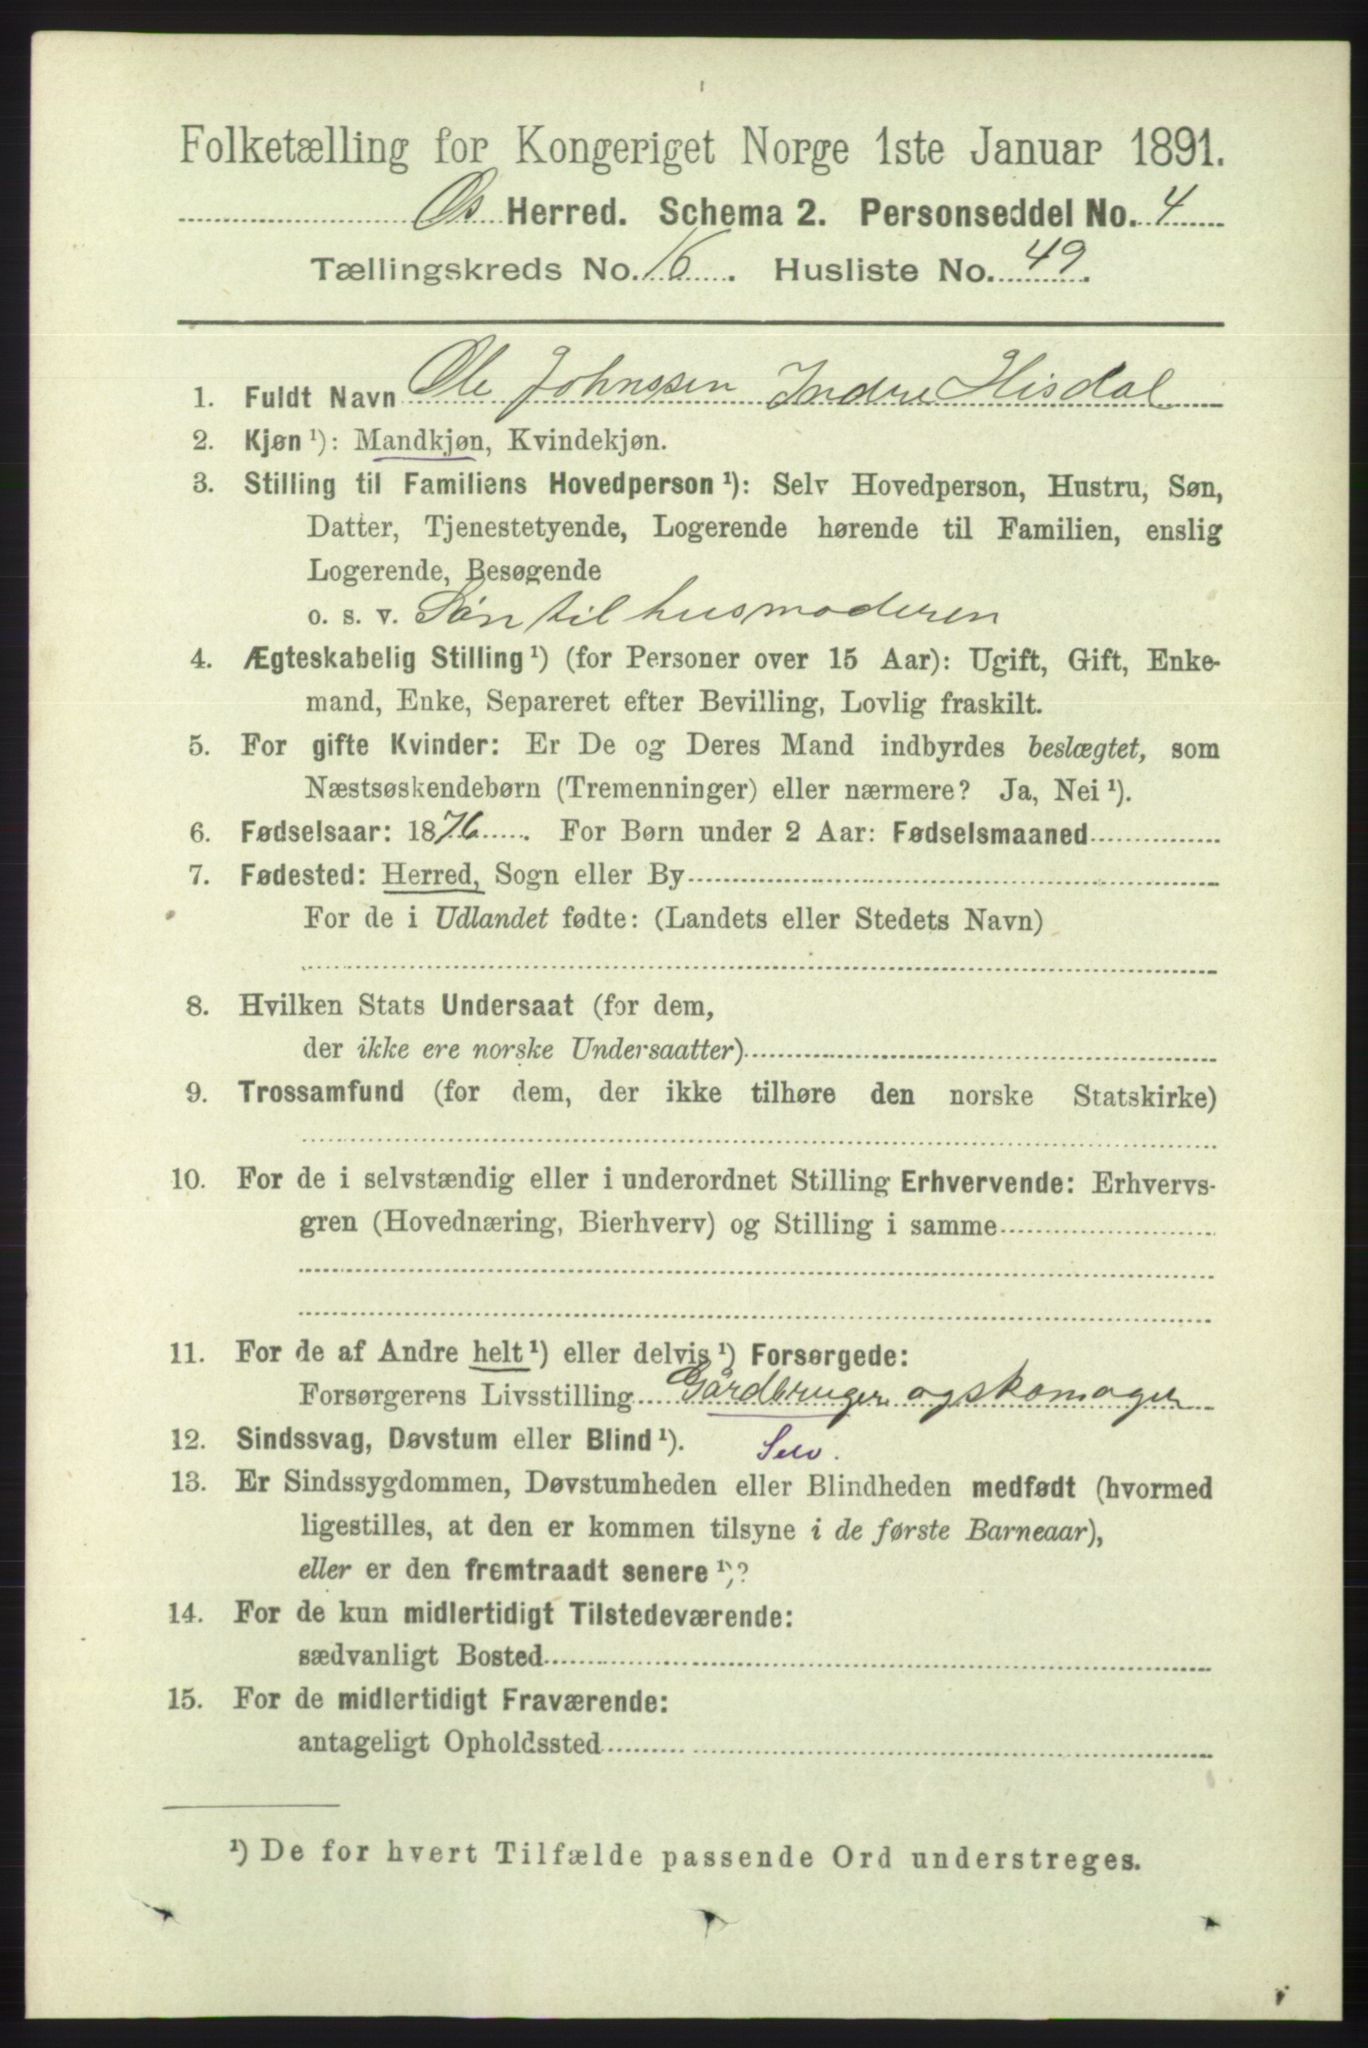 Folketælling for Kongeriget Norge 1ste Januar 1891.
Os Herred. Schema 2. Personseddel No. 4
Tællingskreds No. 16. Husliste No. 49.
1. Fuldt Navn Ole Johnssen Indre Hisdal
2. Kjøn ¹): Mandkjøn, Kvindekjøn.
3. Stilling til Familiens Hovedperson ¹): Selv Hovedperson, Hustru, Søn,
Datter, Tjenestetyende, Logerende hørende til Familien, enslig
Logerende, Besøgende
o. s. v. Søn til husmoderen
4. Ægteskabelig Stilling ¹) (for Personer over 15 Aar): Ugift, Gift, Enke-
mand, Enke, Separeret efter Bevilling, Lovlig fraskilt.
5. For gifte Kvinder: Er De og Deres Mand indbyrdes beslægtet, som
Næstsøskendebørn (Tremenninger) eller nærmere? Ja, Nei ¹).
6. Fødselsaar: 1876. For Børn under 2 Aar: Fødselsmaaned
7. Fødested: Herred, Sogn eller By
For de i Udlandet fødte: (Landets eller Stedets Navn)
8. Hvilken Stats Undersaat (for dem,
der ikke ere norske Undersaatter)
9. Trossamfund (for dem, der ikke tilhøre den norske Statskirke)
10. For de i selvstændig eller i underordnet Stilling Erhvervende: Erhvervs-
gren (Hovednæring, Bierhverv) og Stilling i samme
11. For de af Andre helt ¹) eller delvis ¹) Forsørgede:
Forsørgerens Livsstilling Gårdbruger og skomager
12. Sindssvag, Døvstum eller Blind ¹). Selv.
13. Er Sindssygdommen, Døvstumheden eller Blindheden medfødt (hvormed
ligestilles, at den er kommen tilsyne i de første Barneaar),
eller er den fremtraadt senere ¹)?
14. For de kun midlertidigt Tilstedeværende:
sædvanligt Bosted
15. For de midlertidigt Fraværende:
antageligt Opholdssted
¹) De for hvert Tilfælde passende Ord understreges.